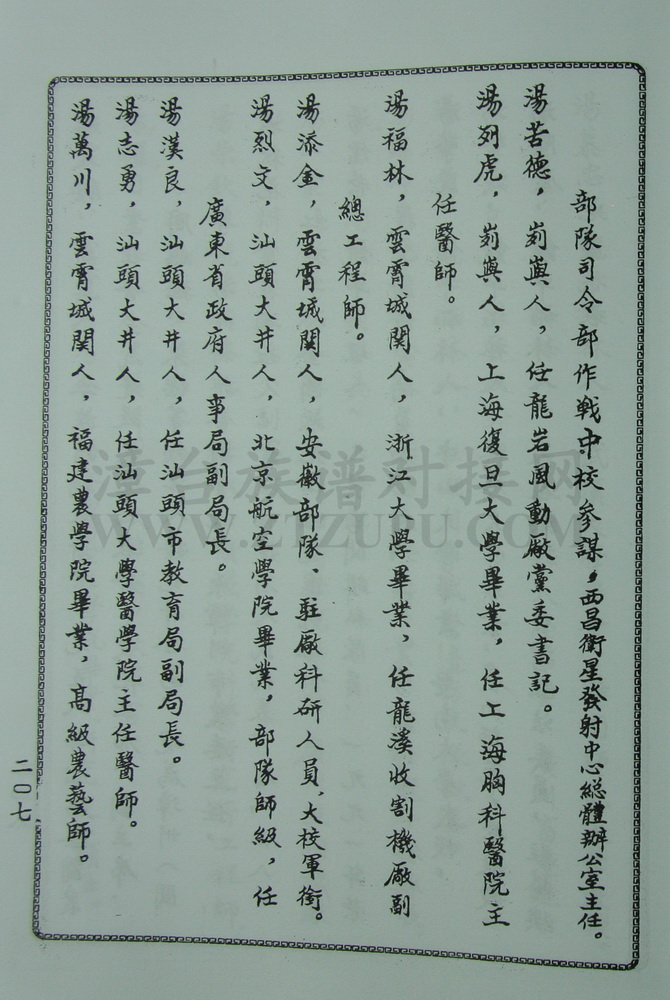 部隊司令部作戰中校參謀，西昌衛星發射中心總體辦公室主任。
湯苦德，峛嶼人，任龍岩風動廠黨委書記。
湯列虎，峛嶼人，上海復旦大學畢業，任上海胸科醫院主
任醫師。
湯福林，雲霄城関人，浙江大學畢業，任龍溪收割機廠副
總工程師。
湯添金，雲霄城関人，安徽部隊、駐廠科研人員，大校軍銜。
湯烈文，汕頭大井人，北京航空學院畢業，部隊師級，任
廣東省政府人事局副局長。
湯漢良，汕頭大井人，任汕頭市教育局副局長。
湯志勇，汕頭大井人，任汕頭大學醫學院主任醫師。
湯萬川，雲霄城関人，福建農學院畢業，高級農藝師。
二〇七
漳台族谱对接网
WWW.ZTZUPU.COM